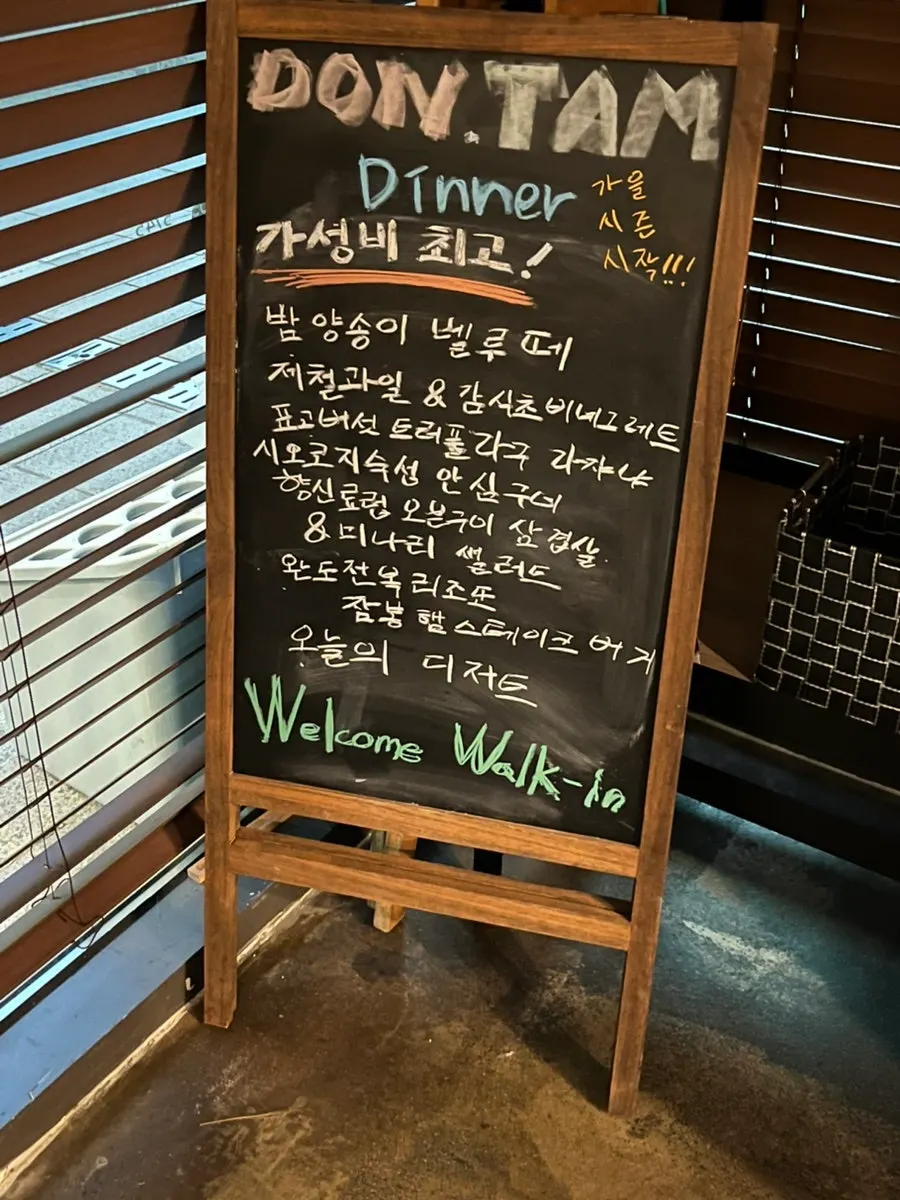 DON.TAM
Dinner
가을
시즌
시작!!!
가성비 최고!
밤 양송이 벨루떼
제철과일 & 감식초 비네그레트
표고버섯 트러플라구 라자냐
시오코지숙성 안심구이
향신료럽 오븐구이 삼겹살
& 미나리 샐러드
완도전복 리조또
잠봉 햄 스테이크 버거
오늘의 디저트
Welcome Walk-in